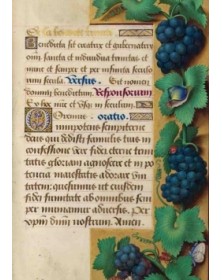 Benedicta sit creatrix et gubernatrix
omniu sancta et individua trinitas et
nunc et semper et per infinita seculo
rum secula. Versus.
domino benedictum. Responsorium.
Et hoc nunc et vsq; in seculum.
Oremus. oratio.
Omnipotens sempiterne
deus qui dedisti famulis tuis in
confessione vere fidei eterne trini
tatis gloriam agnoscere et in po
tentia maiestatis adorare vni
tatem: quesumus ut eiusdem
fidei firmitate ab omnibus sem
per muniamur adversis. Per
xpm dnm nostrum. Amen.